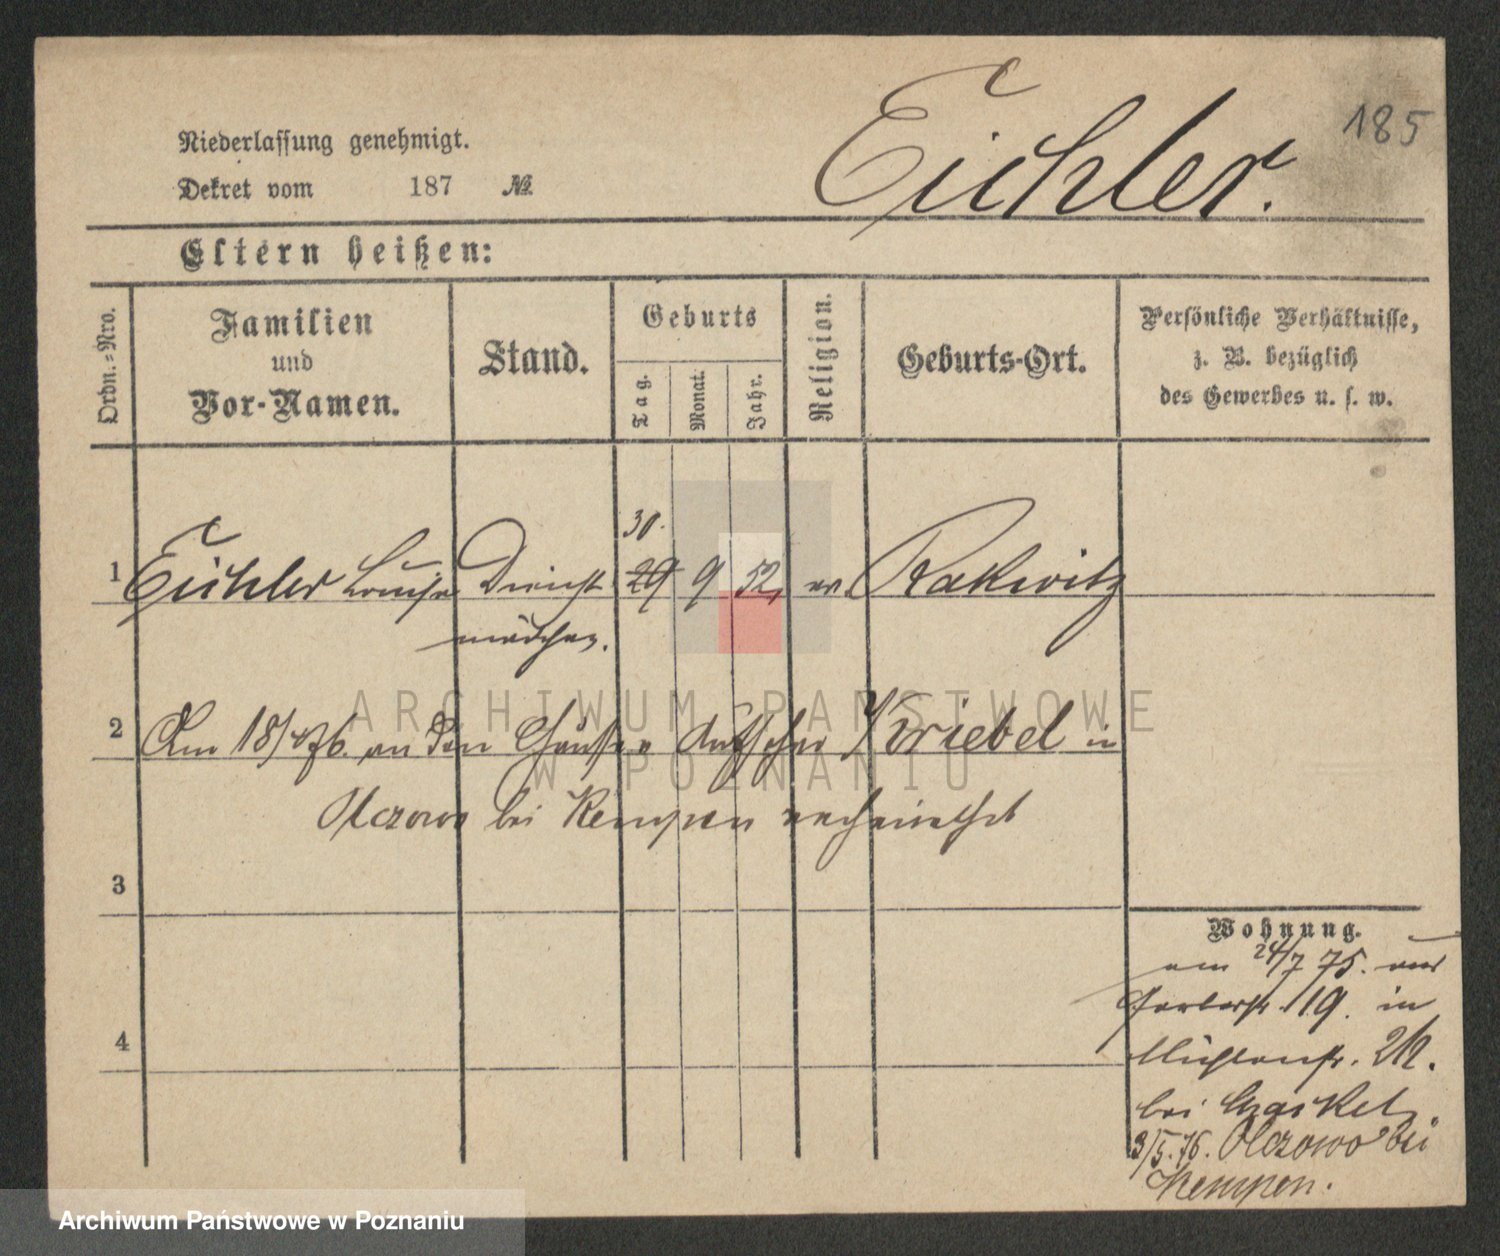 185
Eichler.
Niederlassung genehmigt.
Dekret vom 187 №
Eltern heißen:
Ordn.-Nro.
Familien
und
Vor-Namen.
Stand.
Geburts
Tag.
Monat.
Jahr.
Religion.
Geburts-Ort.
Persönliche Verhältnisse,
z. B. bezüglich
des Gewerbes u. s. w.
30.
1 Eichler Louise Dienst 29 9 52, ev. Rakwitz
mädchen.
2 Am 18/4 76. an den Kriebel in
Olczowo bei Kempen verheirathet
3
4
Wohnung.
am 24/7 75. aus
Gerberstr. 119. in
Mühlenstr.
bei
3/5. 76. Olczowo bei
Kempen.
ARCHIWUM PAŃSTWOWE
W POZNANIU
Archiwum Państwowe w Poznaniu